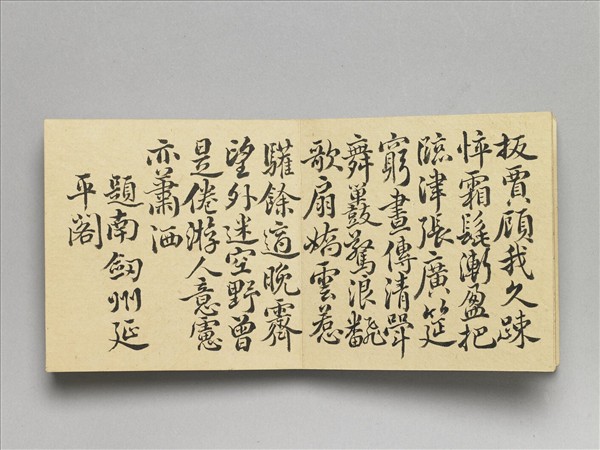 扳賈顧我久踈
悴霜髭漸盈把
臨津張廣筵
窮晝傳清斝
舞驚浪飜
歌扇嬌雲惹
驩餘適晚霽
望外迷空野曾
是倦游人意慮
亦蕭洒
題南劒州延
平閣